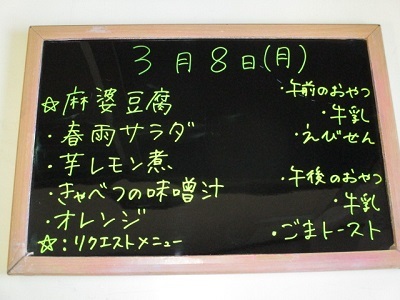 3月8日(月)
☆麻婆豆腐
・春雨サラダ
・芋レモン煮
・きゃべつの味噌汁
・オレンジ
☆:リクエストメニュー
・午前のおやつ
・牛乳
・えびせん
・午後のおやつ
・牛乳
・ごまトースト